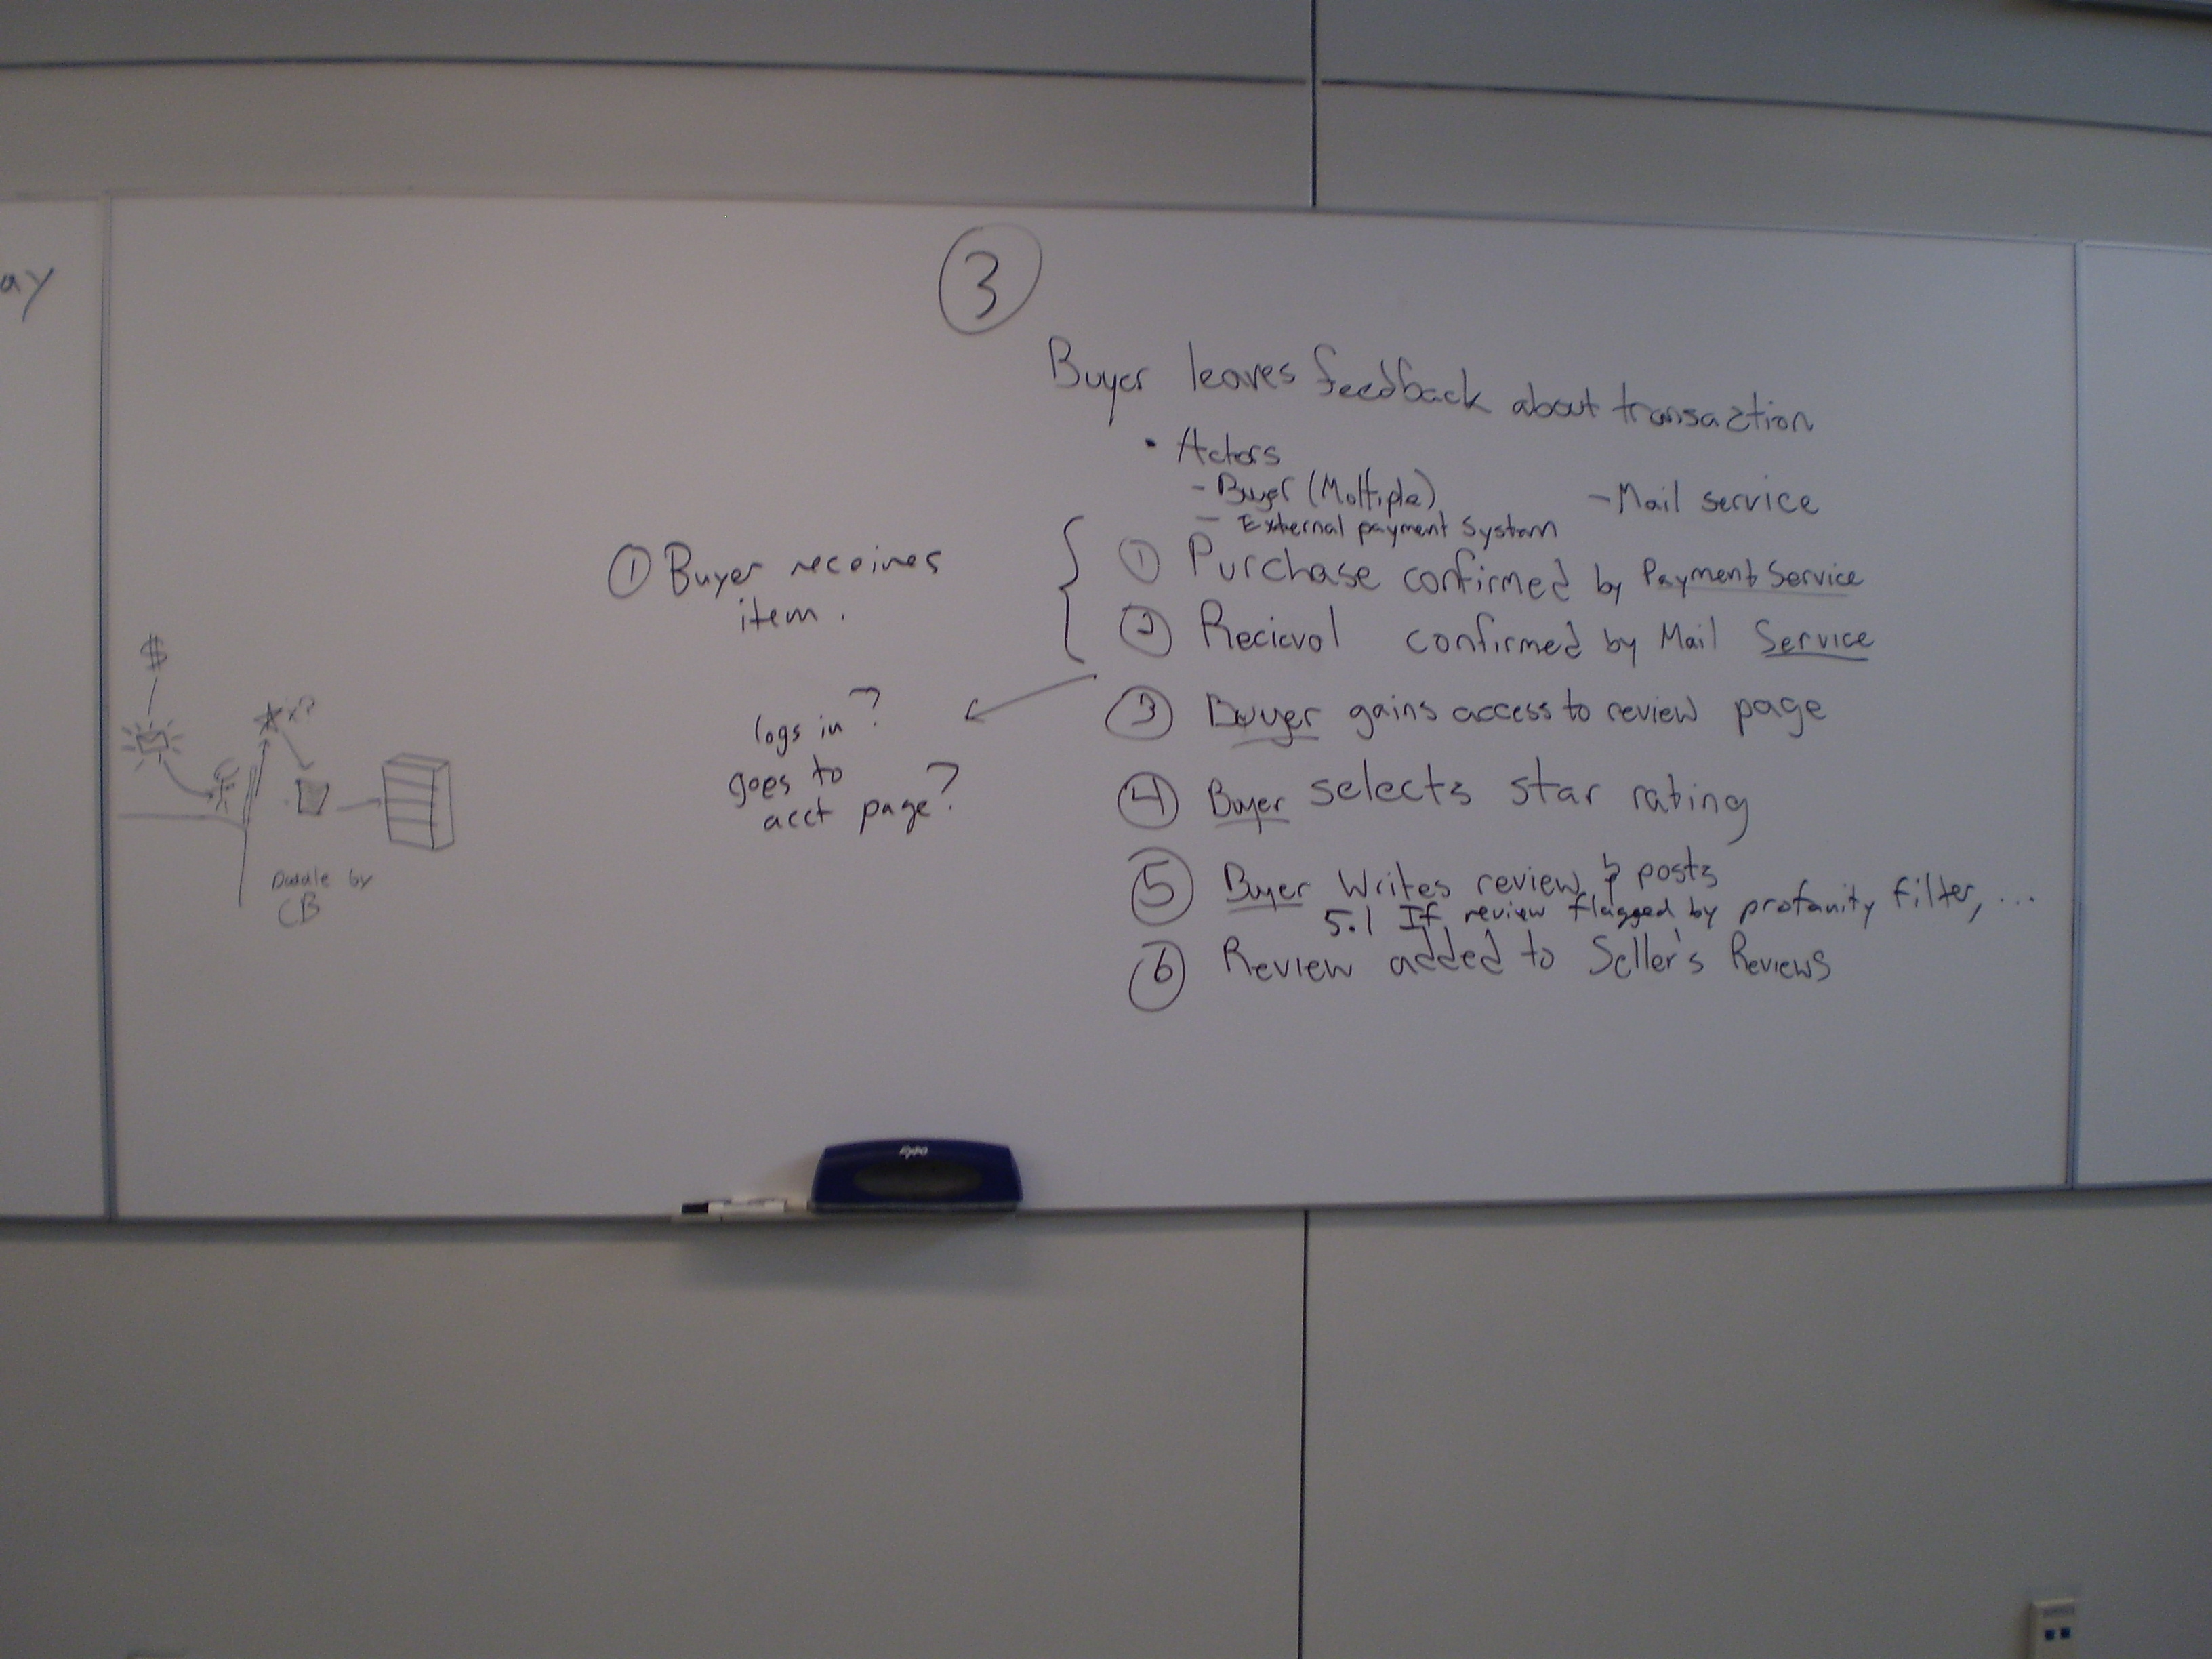 ay
3
Buyer leaves feedback about transaction
• Actors
- Buyer (Moltiple)
- Mail service
- External payment System
① Purchase confirmed by Payment Service
② Recievol confirmed by Mail Service
③ Buyer gains access to review page
④ Buyer selects star rating
⑤ Buyer Writes review & posts
5.1 If review flagged by profanity filter, ...
⑥ Review added to Seller's Reviews
① Buyer receives
item.
logs in?
goes to
acct page?
$
x?
Doodle by
CB
Expo